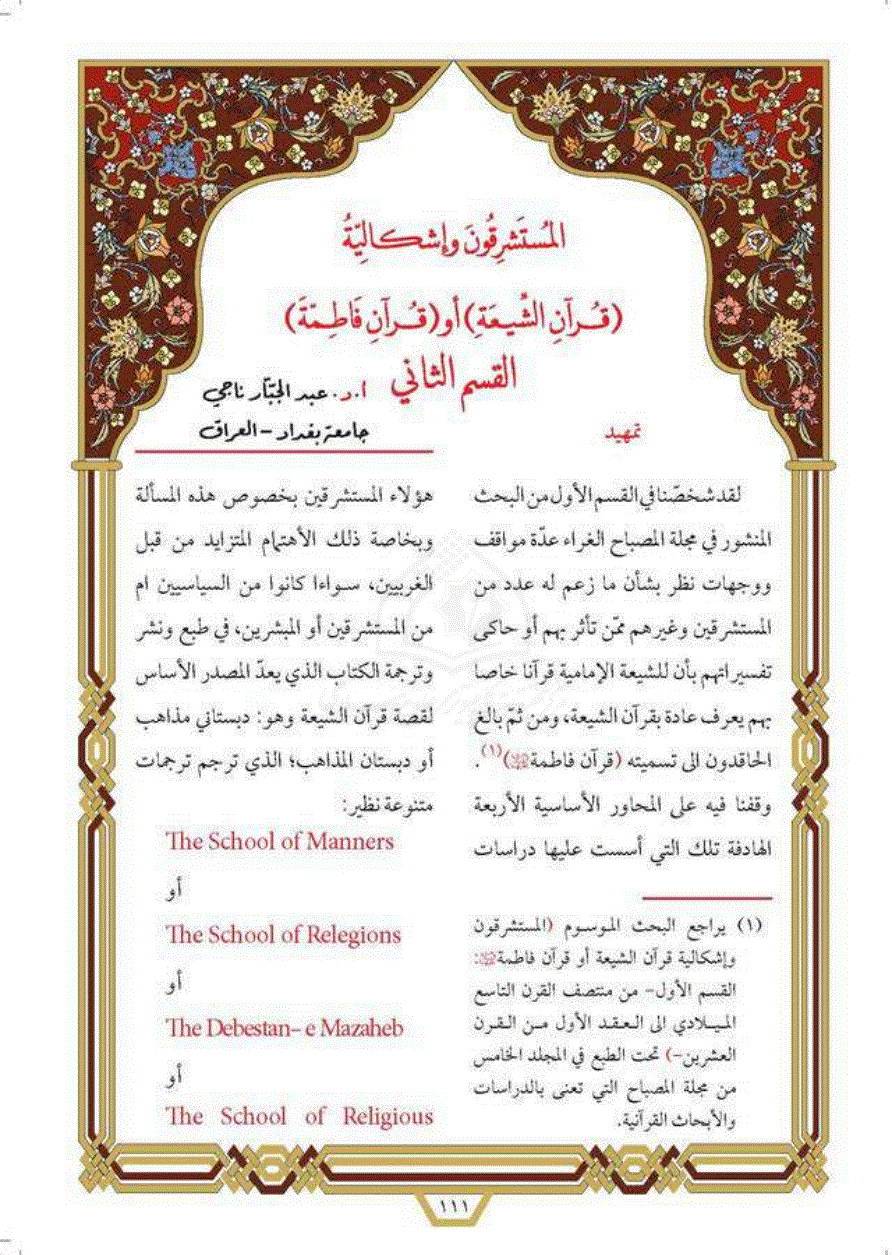 المُستَشرِقُونَ وإشكاليّةُ
(قُرآنِ الشِّيعَةِ) أو (قُرآنِ فَاطِمَةَ)
القسم الثاني
أ.د. عبد الجبّار ناجي
جامعة بغداد - العراق
تمهيد
لقد شخصّنا في القسم الأول من البحث
المنشور في مجلة المصباح الغراء عدّة مواقف
ووجهات نظر بشأن ما زعم له عدد من
المستشرقين وغيرهم ممّن تأثر بهم أو حاكى
تفسيراتهم بأن للشيعة الإمامية قرآنا خاصا
بهم يعرف عادة بقرآن الشيعة، ومن ثمّ بالغ
الحاقدون الى تسميته (قرآن فاطمة)(١).
وقفنا فيه على المحاور الأساسية الأربعة
الهادفة تلك التي أسست عليها دراسات
(١) يراجع البحث الموسوم (المستشرقون
وإشكالية قرآن الشيعة أو قرآن فاطمة:
القسم الأول- من منتصف القرن التاسع
الميلادي الى العقد الأول من القرن
العشرين-) تحت الطبع في المجلد الخامس
من مجلة المصباح التي تعنى بالدراسات
والأبحاث القرآنية.
هؤلاء المستشرقين بخصوص هذه المسألة
وبخاصة ذلك الأهتمام المتزايد من قبل
الغربيين، سواءا كانوا من السياسيين ام
من المستشرقين أو المبشرين، في طبع ونشر
وترجمة الكتاب الذي يعدّ المصدر الأساس
لقصة قرآن الشيعة وهو: دبستاني مذاهب
أو دبستان المذاهب؛ الذي ترجم ترجمات
متنوعة نظير:
The School of Manners
أو
The School of Relegions
أو
The Debestan- e Mazaheb
أو
The School of Religious
١١١